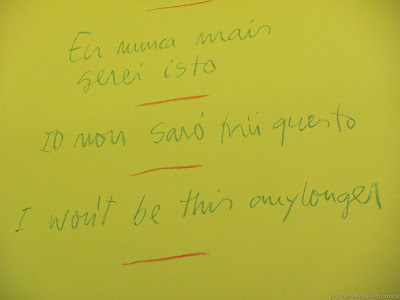 Eu nunca mais
serei isto
IO non sarò più questo
I won't be this anylonger